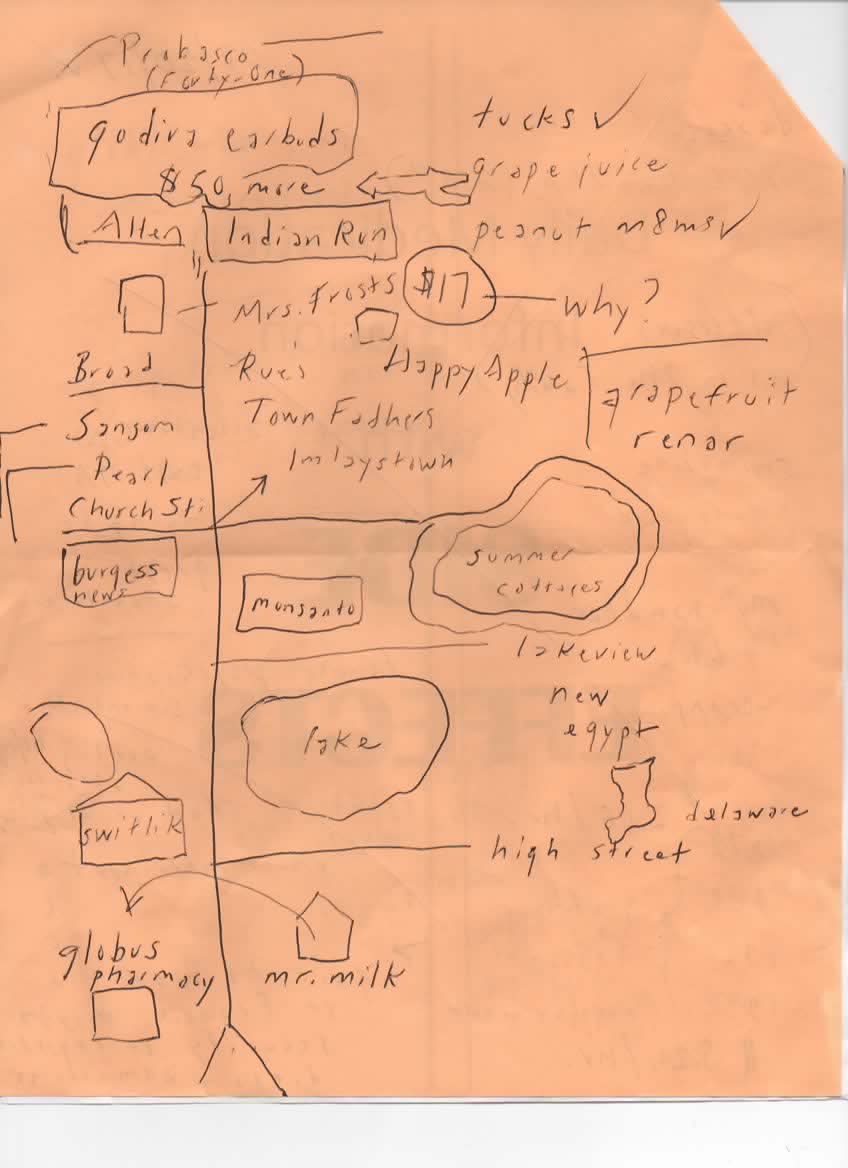 Probasco
(Forty-One)
godiva earbuds
$50, more
tucks ✓
grape juice
peanut m&ms ✓
Allen
Indian Run
Mrs. Frosts
$17
why?
Broad
Rues
Happy Apple
grapefruit
renar
Sansom
Town Fathers
Pearl
Imlaystown
Church St.
burgess
news
monsanto
summer
cottages
lakeview
new
egypt
lake
switlik
delaware
high street
globus
pharmacy
mr. milk